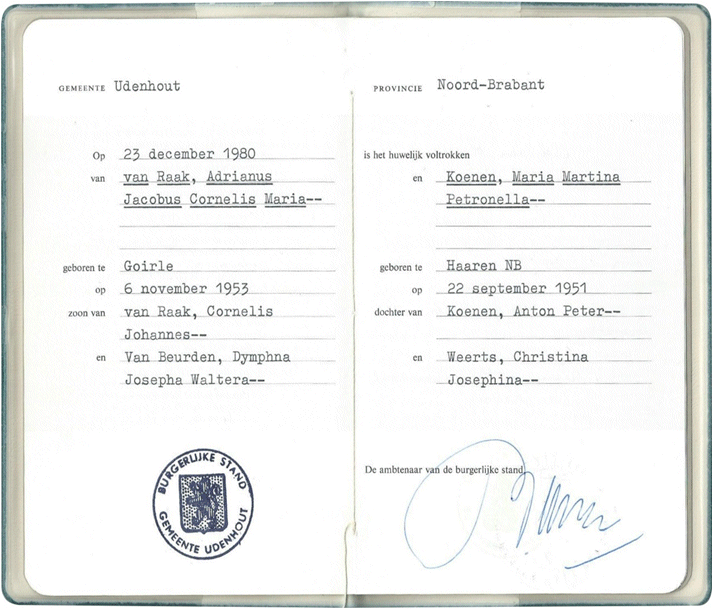 GEMEENTE Udenhout
Op 23 december 1980
van van Raak, Adrianus
Jacobus Cornelis Maria--
geboren te Goirle
op 6 november 1953
zoon van van Raak, Cornelis
Johannes--
en Van Beurden, Dymphna
Josepha Waltera--
BURGERLIJKE STAND
GEMEENTE UDENHOUT
PROVINCIE Noord-Brabant
is het huwelijk voltrokken
en Koenen, Maria Martina
Petronella--
geboren te Haaren NB
op 22 september 1951
dochter van Koenen, Anton Peter--
en Weerts, Christina
Josephina--
De ambtenaar van de burgerlijke stand,